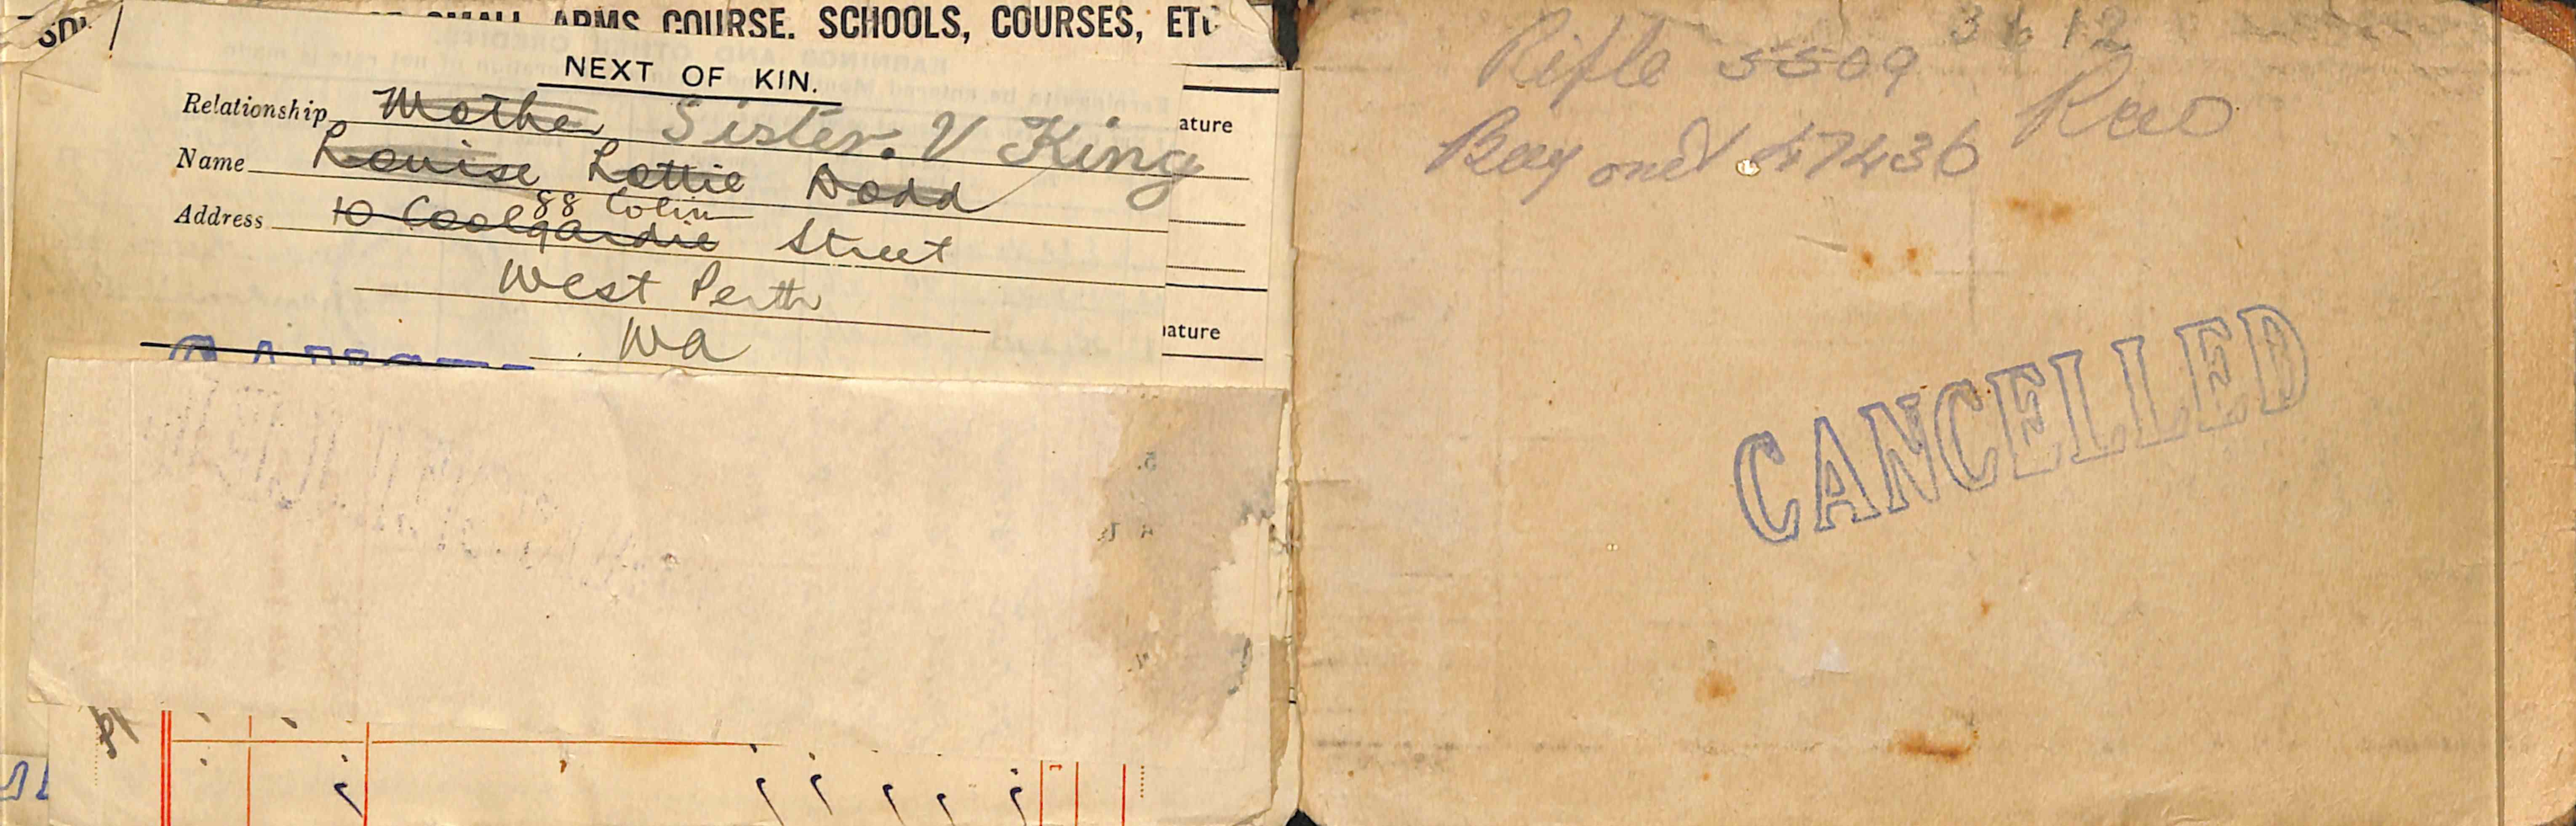 SMALL ARMS COURSE. SCHOOLS, COURSES, ETC
NEXT OF KIN.
Relationship Mother Sister. V King
Name Louise Lottie Dodd
88 Colin
Address 10 Coolgardie Street
West Perth
Wa
ature
ature
Rifle 5509
Bayonet 47436
3 6 12
CANCELLED